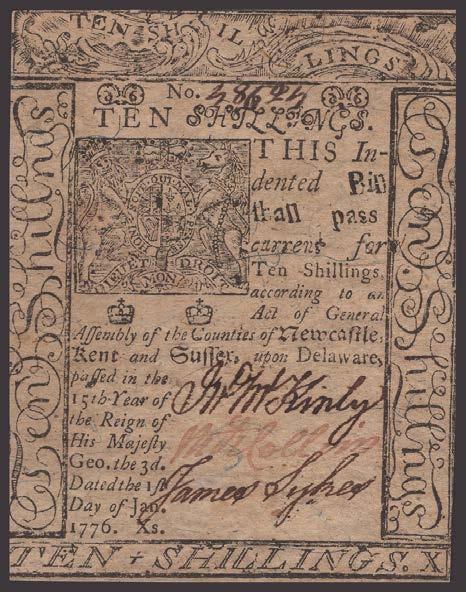 TEN SHILLINGS
No. 48624
TEN SHILLINGS.
THIS In-
dented Bill
shall pass
current for
Ten Shillings,
according to an
Act of General
HONI SOIT QUI MAL Y PENSE
DIEU ET MON DROIT
Assembly of the Counties of Newcastle,
Kent and Sussex, upon Delaware,
passed in the
15th Year of
the Reign of
His Majesty
Geo. the 3d.
Dated the 1st
Day of Jan.
1776. Xs.
Jno McKinly
James Sykes
Ten Shillings
Ten Shillings
TEN SHILLINGS. X